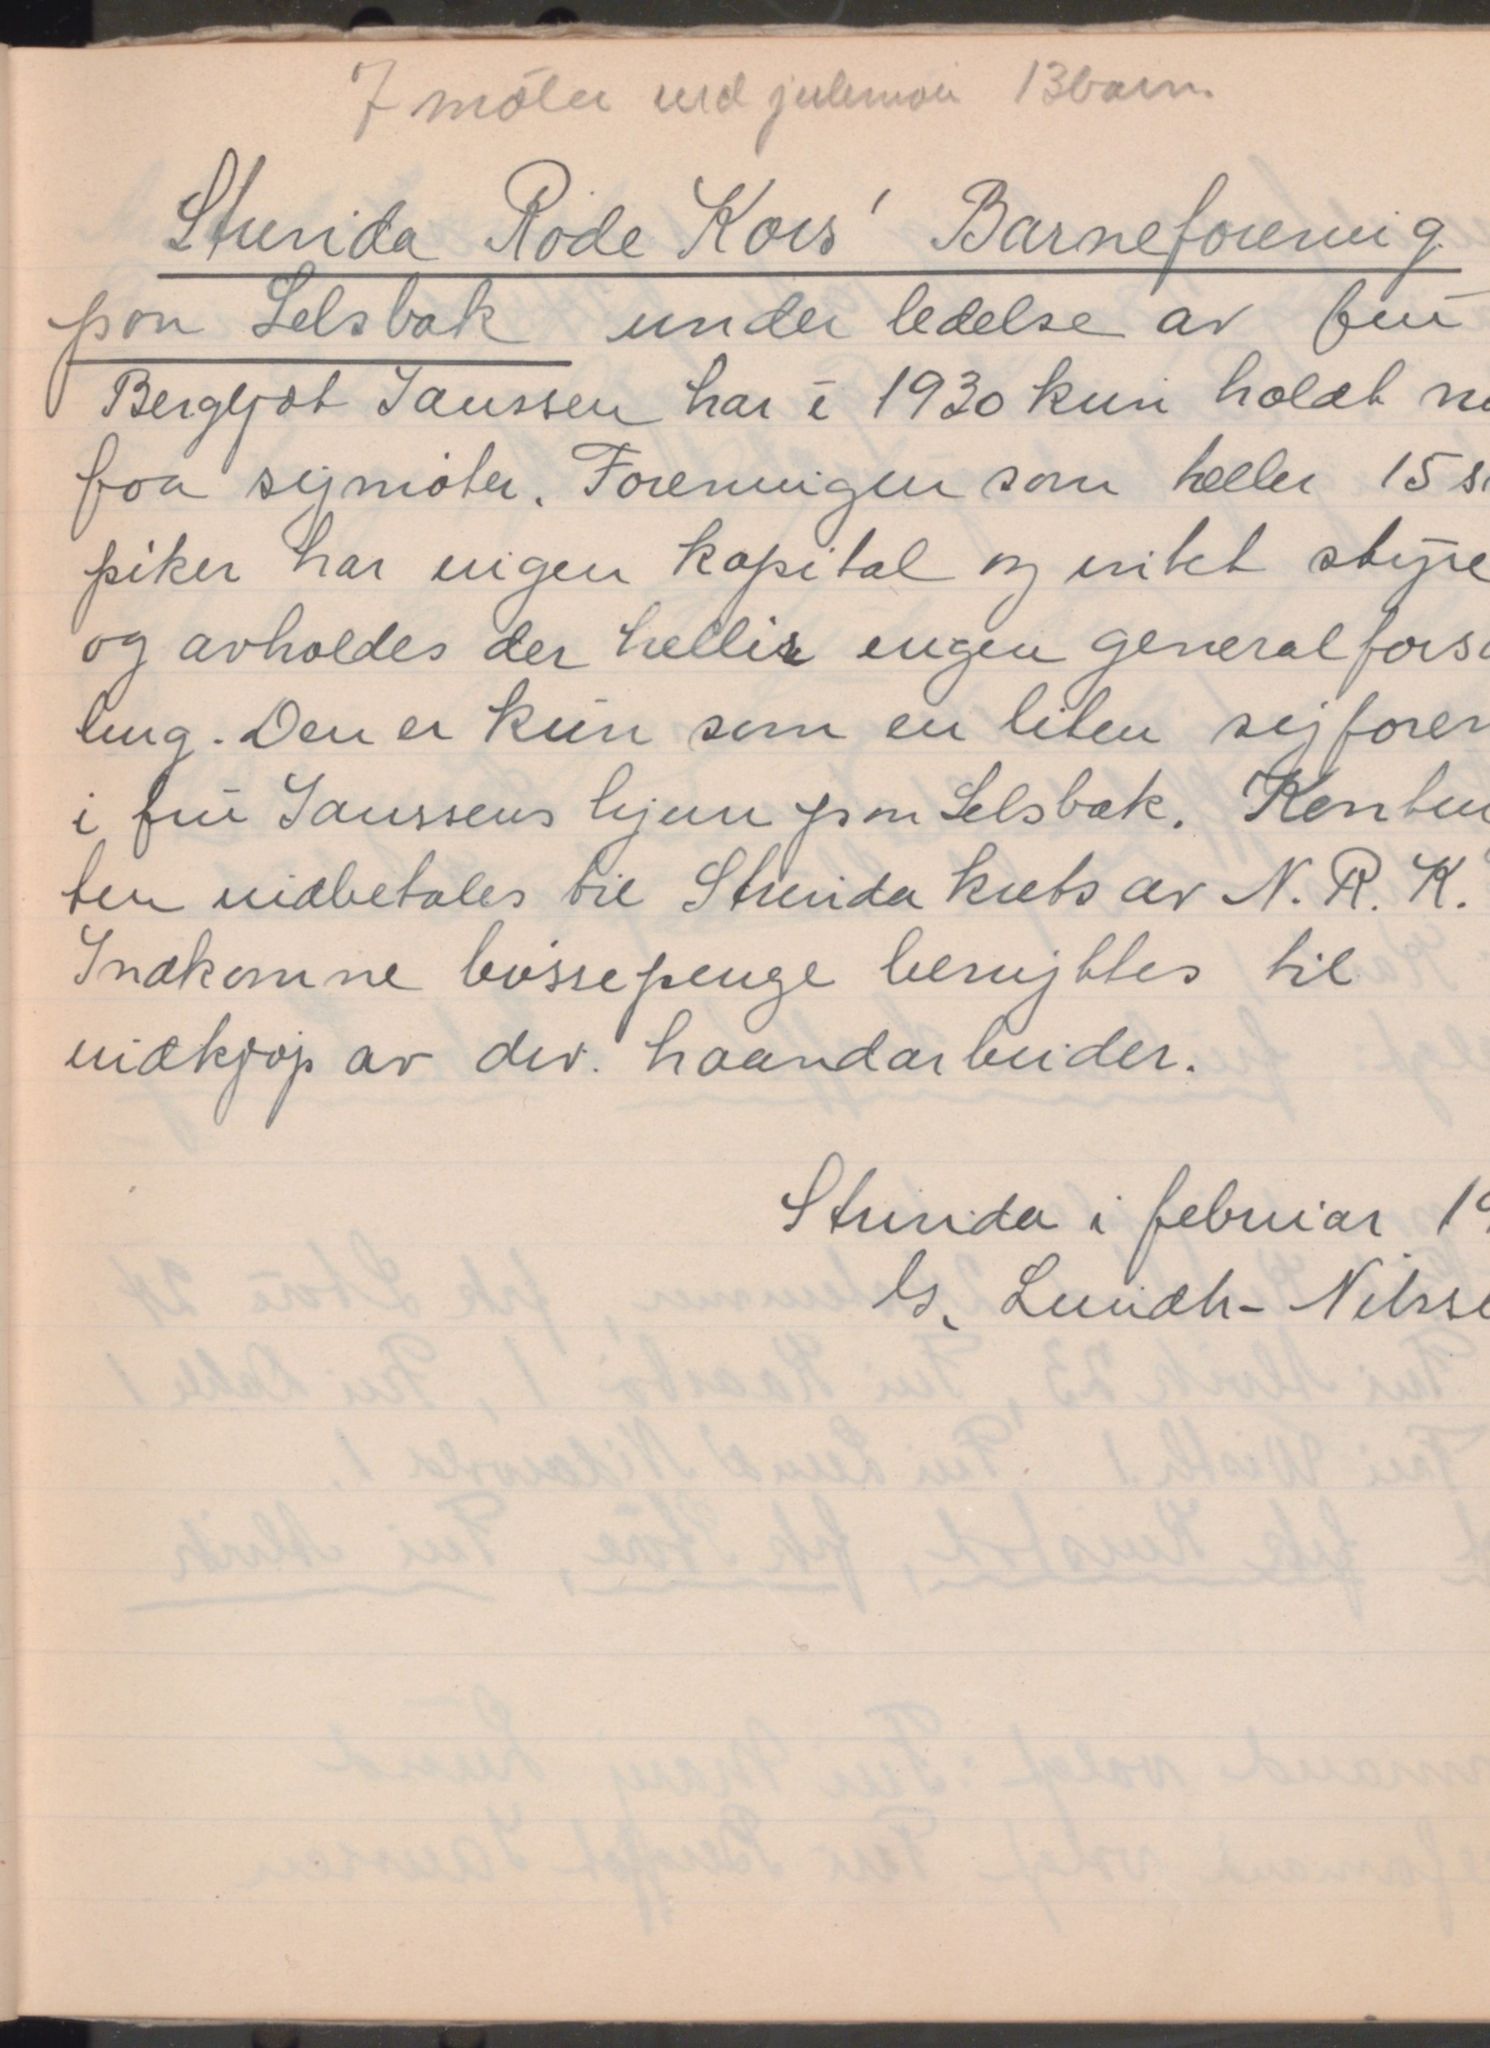 7 møter ved julemøte 13 barn.
Strinda Røde Kors' Barneforening
paa Selsbak under ledelse av fru
Bergljot Janssen har i 1930 kun holdt
faa symøter. Foreningen som teller 15
piker har ingen kapital og intet styre
og avholdes der heller ingen generalforsa
ling. Den er kun som en liten syforen
i fru Janssens hjem paa Selsbak. Kontin
ten indbetales til Strinda krets av N. R. K.
Indkomne bøssepenge benyttes til
indkjøp av div. haandarbeider.
Strinda i februar 19
G. Lundh-Nilsse